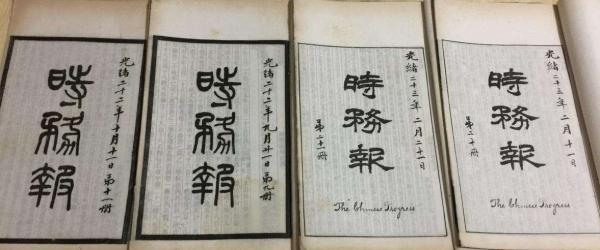 光緒二十二年十月十一日 第十一冊
時務報
光緒二十二年九月廿一日 第九冊
時務報
光緒二十三年 二月二十一日
時務報
第二十一冊
The Chinese Progress
光緒二十三年 二月十一日
時務報
第二十冊
The Chinese Progress